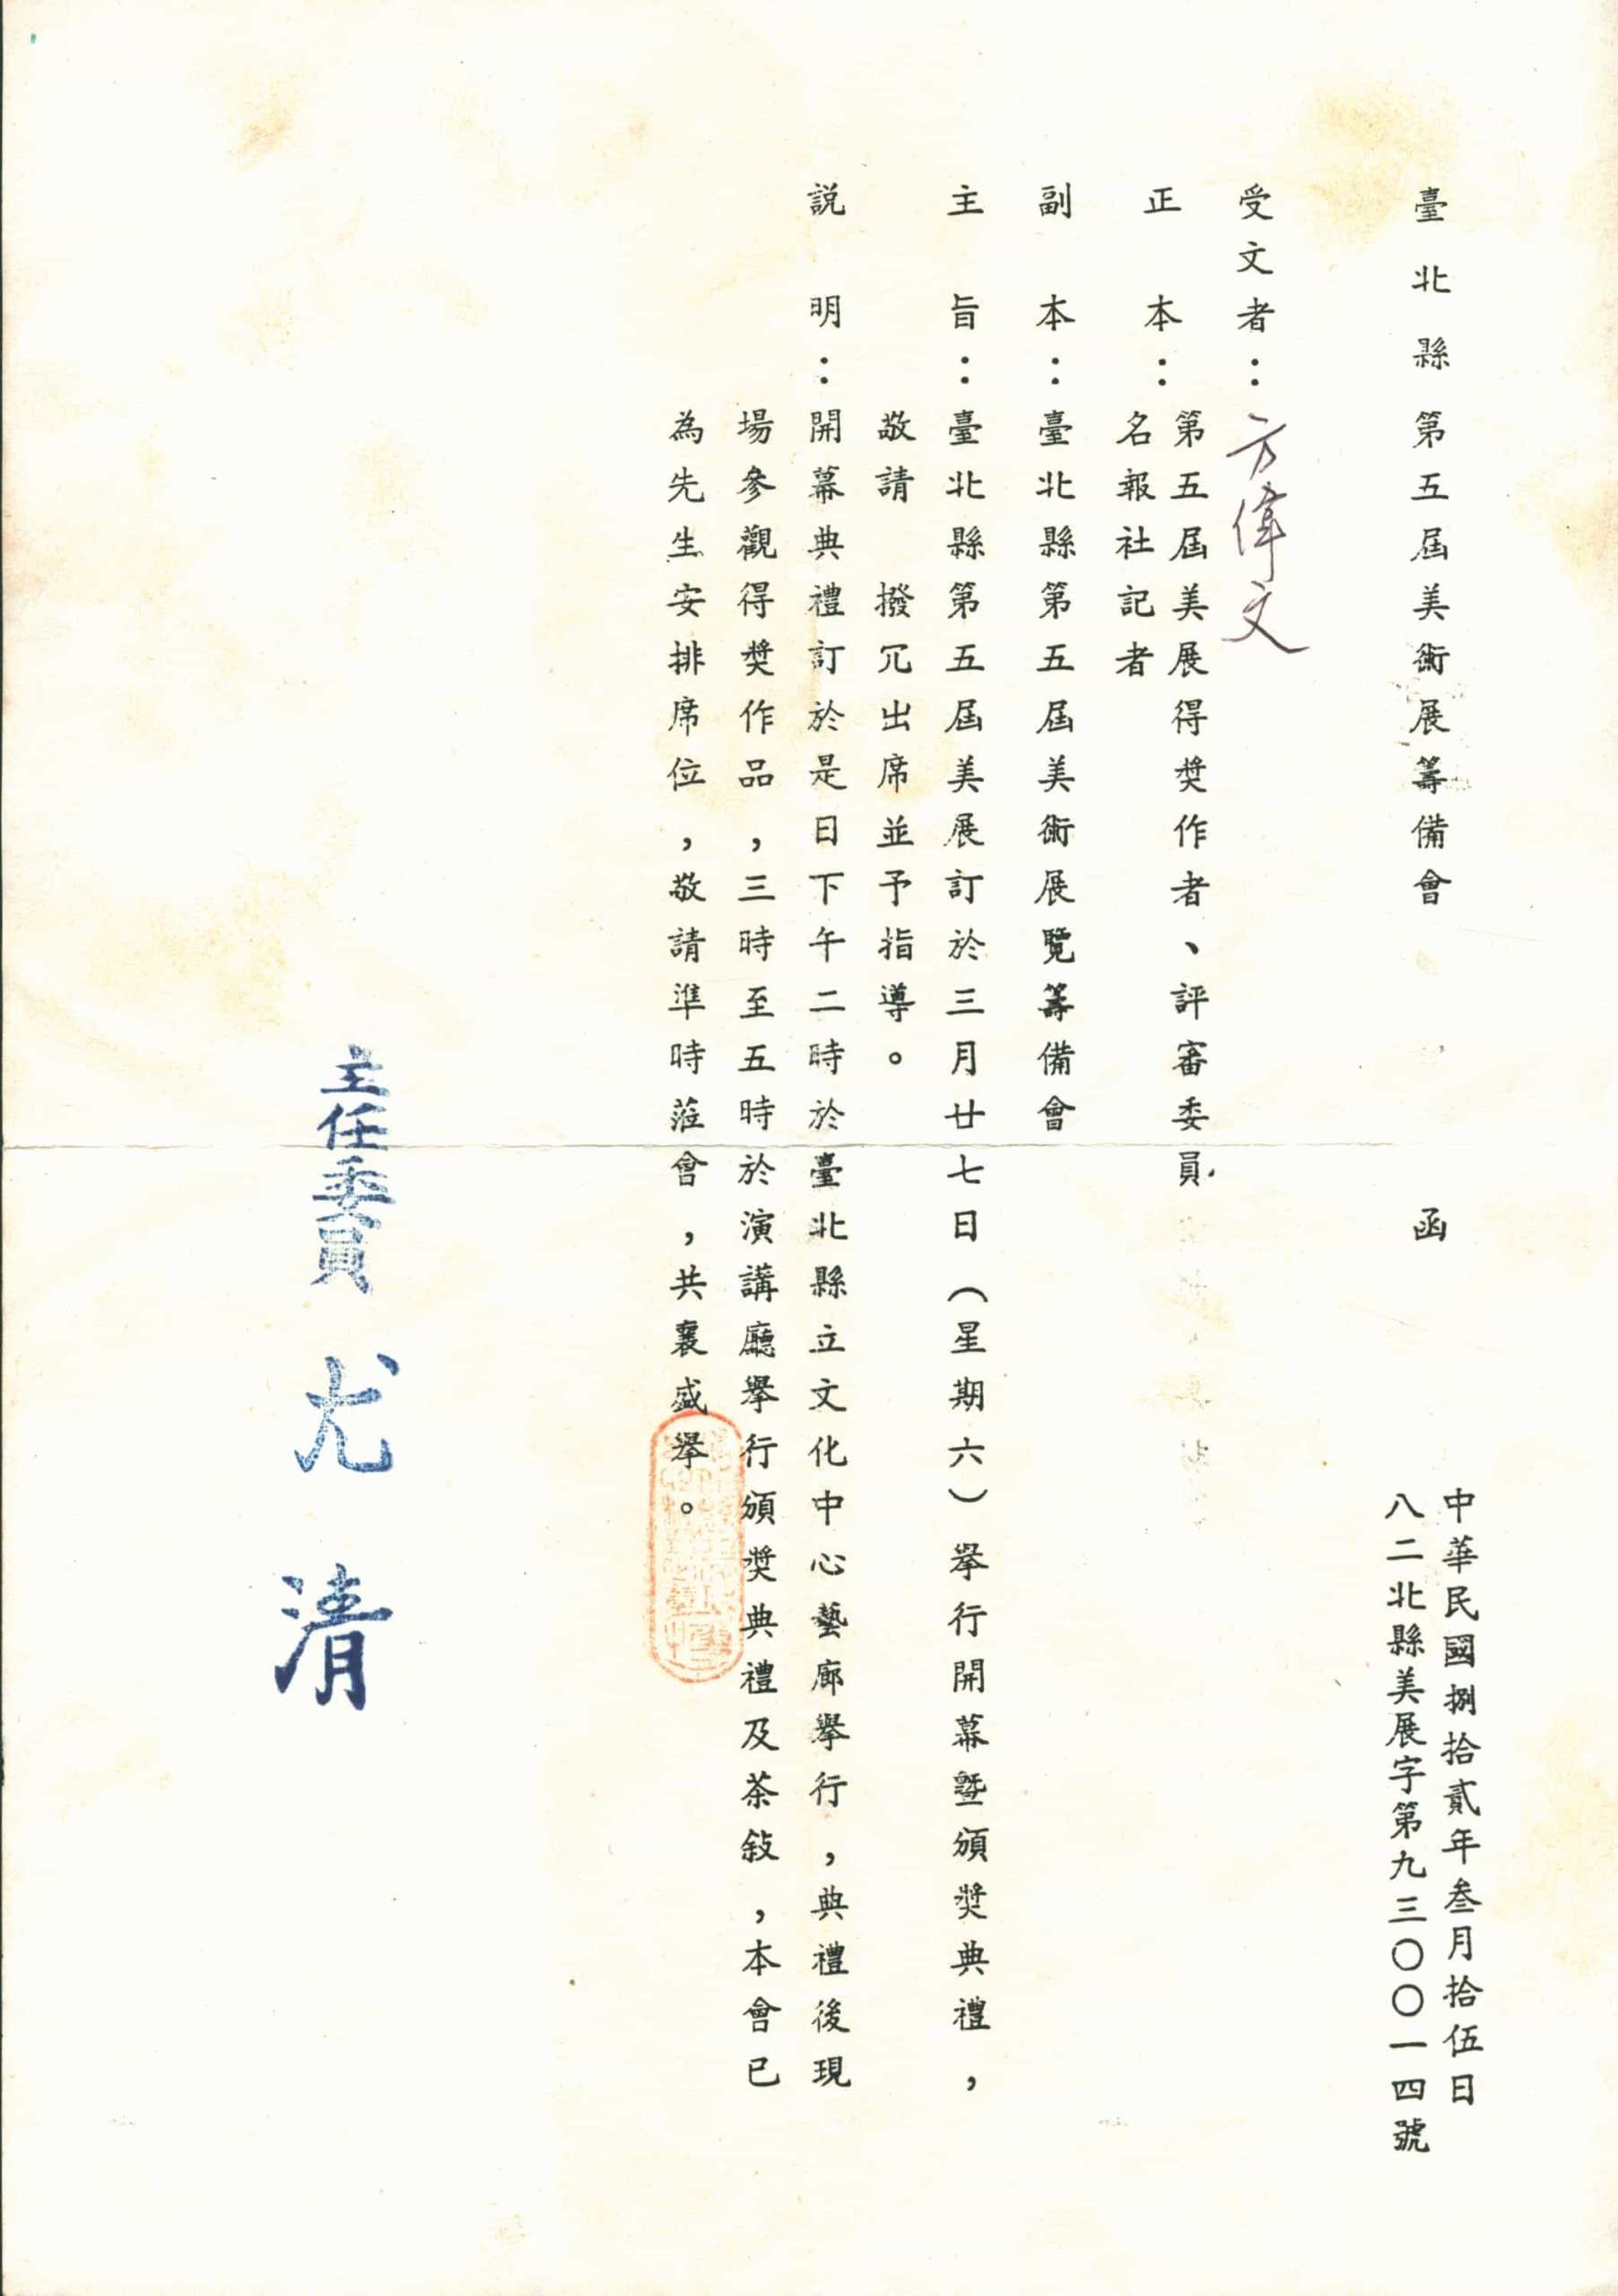 臺北縣第五屆美術展籌備會　函
中華民國捌拾貳年叁月拾伍日
八二北縣美展字第九三〇〇一四號
受文者：方偉文
正本：第五屆美展得獎作者、評審委員
名報社記者
副本：臺北縣第五屆美術展覽籌備會
主旨：臺北縣第五屆美展訂於三月廿七日（星期六）舉行開幕暨頒獎典禮，
敬請　撥冗出席並予指導。
說明：開幕典禮訂於是日下午二時於臺北縣立文化中心藝廊舉行，典禮後現
場參觀得獎作品，三時至五時於演講廳舉行頒獎典禮及茶敍，本會已
為先生安排席位，敬請準時蒞會，共襄盛舉。
主任委員　尤清